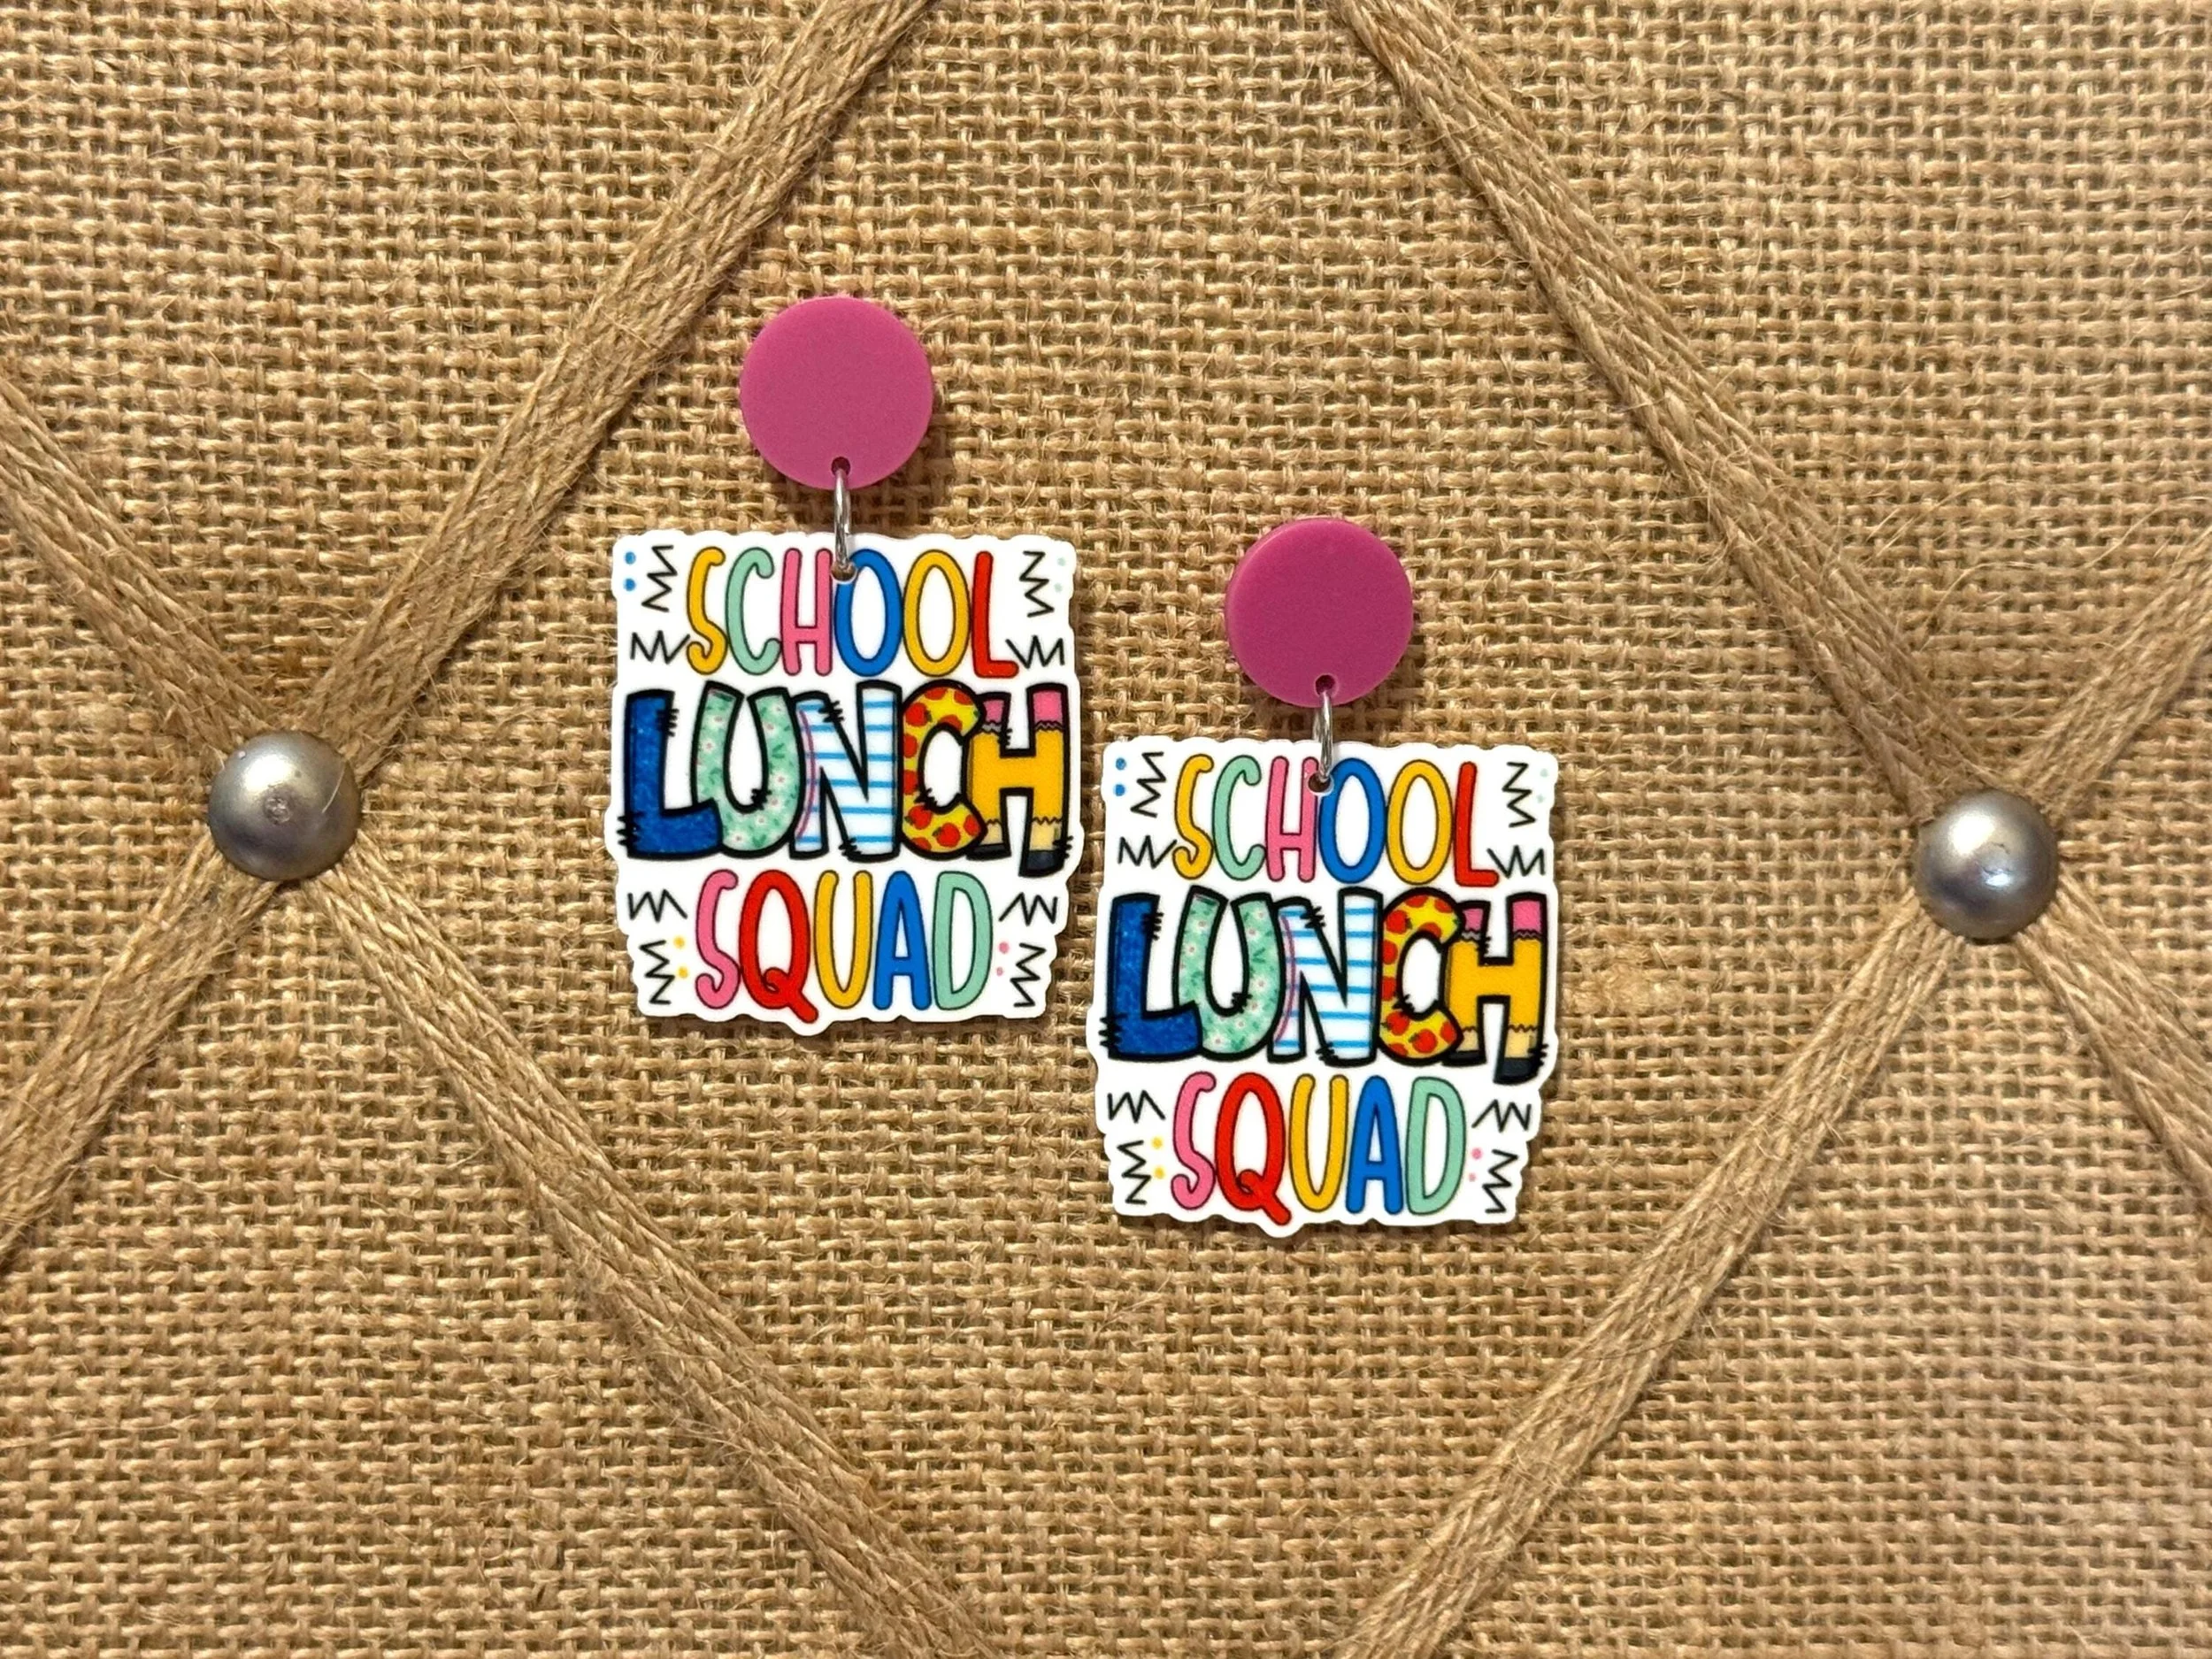 SCHOOL
LUNCH
SQUAD
SCHOOL
LUNCH
SQUAD